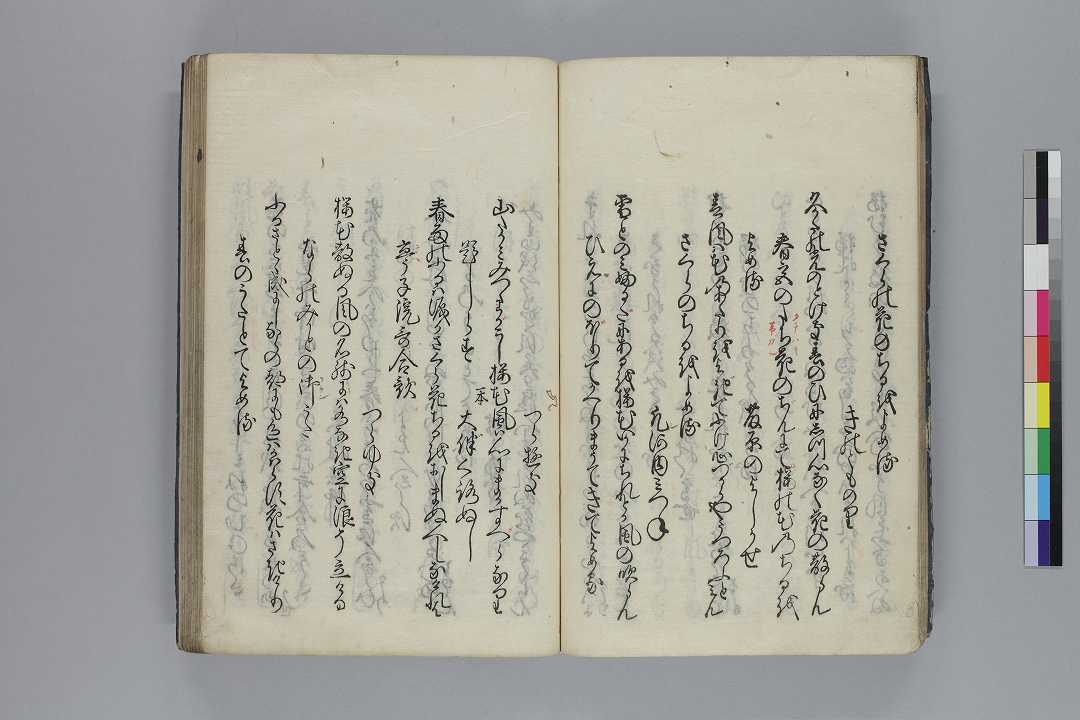 さくらの花のちるをよめる
きのとものり
久かたの光のとけき春のひにしつ心なく花の散らん
春宮のたちはきのちんにて桜の花のちるを
よめる
藤原のよしかせ
春風は花のあたりをよきてふけ心つからやうつろふとみん
さくらのちるをよめる
凡河内みつね
雪とのみふるたにあるを桜花いかにちれとか風の吹らん
ひえにのほりてかへりまうてきてよめる
つらゆき
山たかみみつゝわかこし桜花風は心にまかすへらなり
題しらす
一本
大伴くろぬし
春雨のふるは涙かさくら花ちるをおしまぬ人しなけれは
亭子院哥合歌
つらゆき
桜花散ぬる風の名残には水なき空に浪そ立ける
ならのみかとの御うた
ふるさとゝ成にしならの都にも色はかはらす花はさきけり
春のうたとてよめる